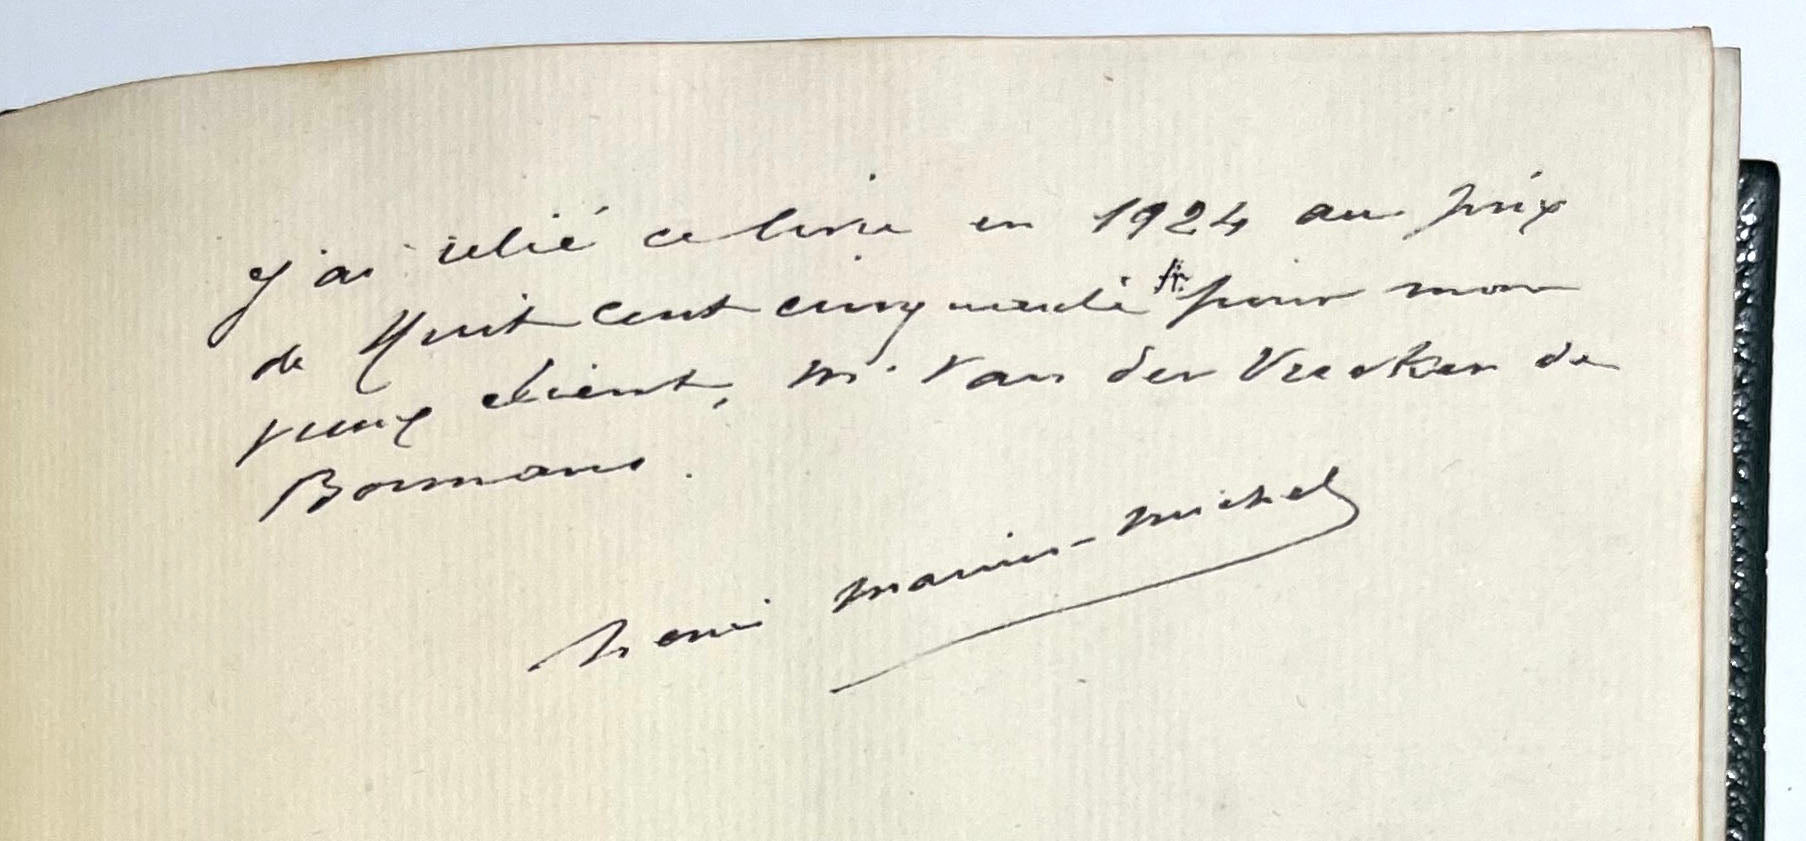 J'ai relié ce livre en 1924 au prix
de Huit cent cinquante fr. pour mon
vieux client, M. Van der Vrecken de
Bormans.
Henri Marius-Michel